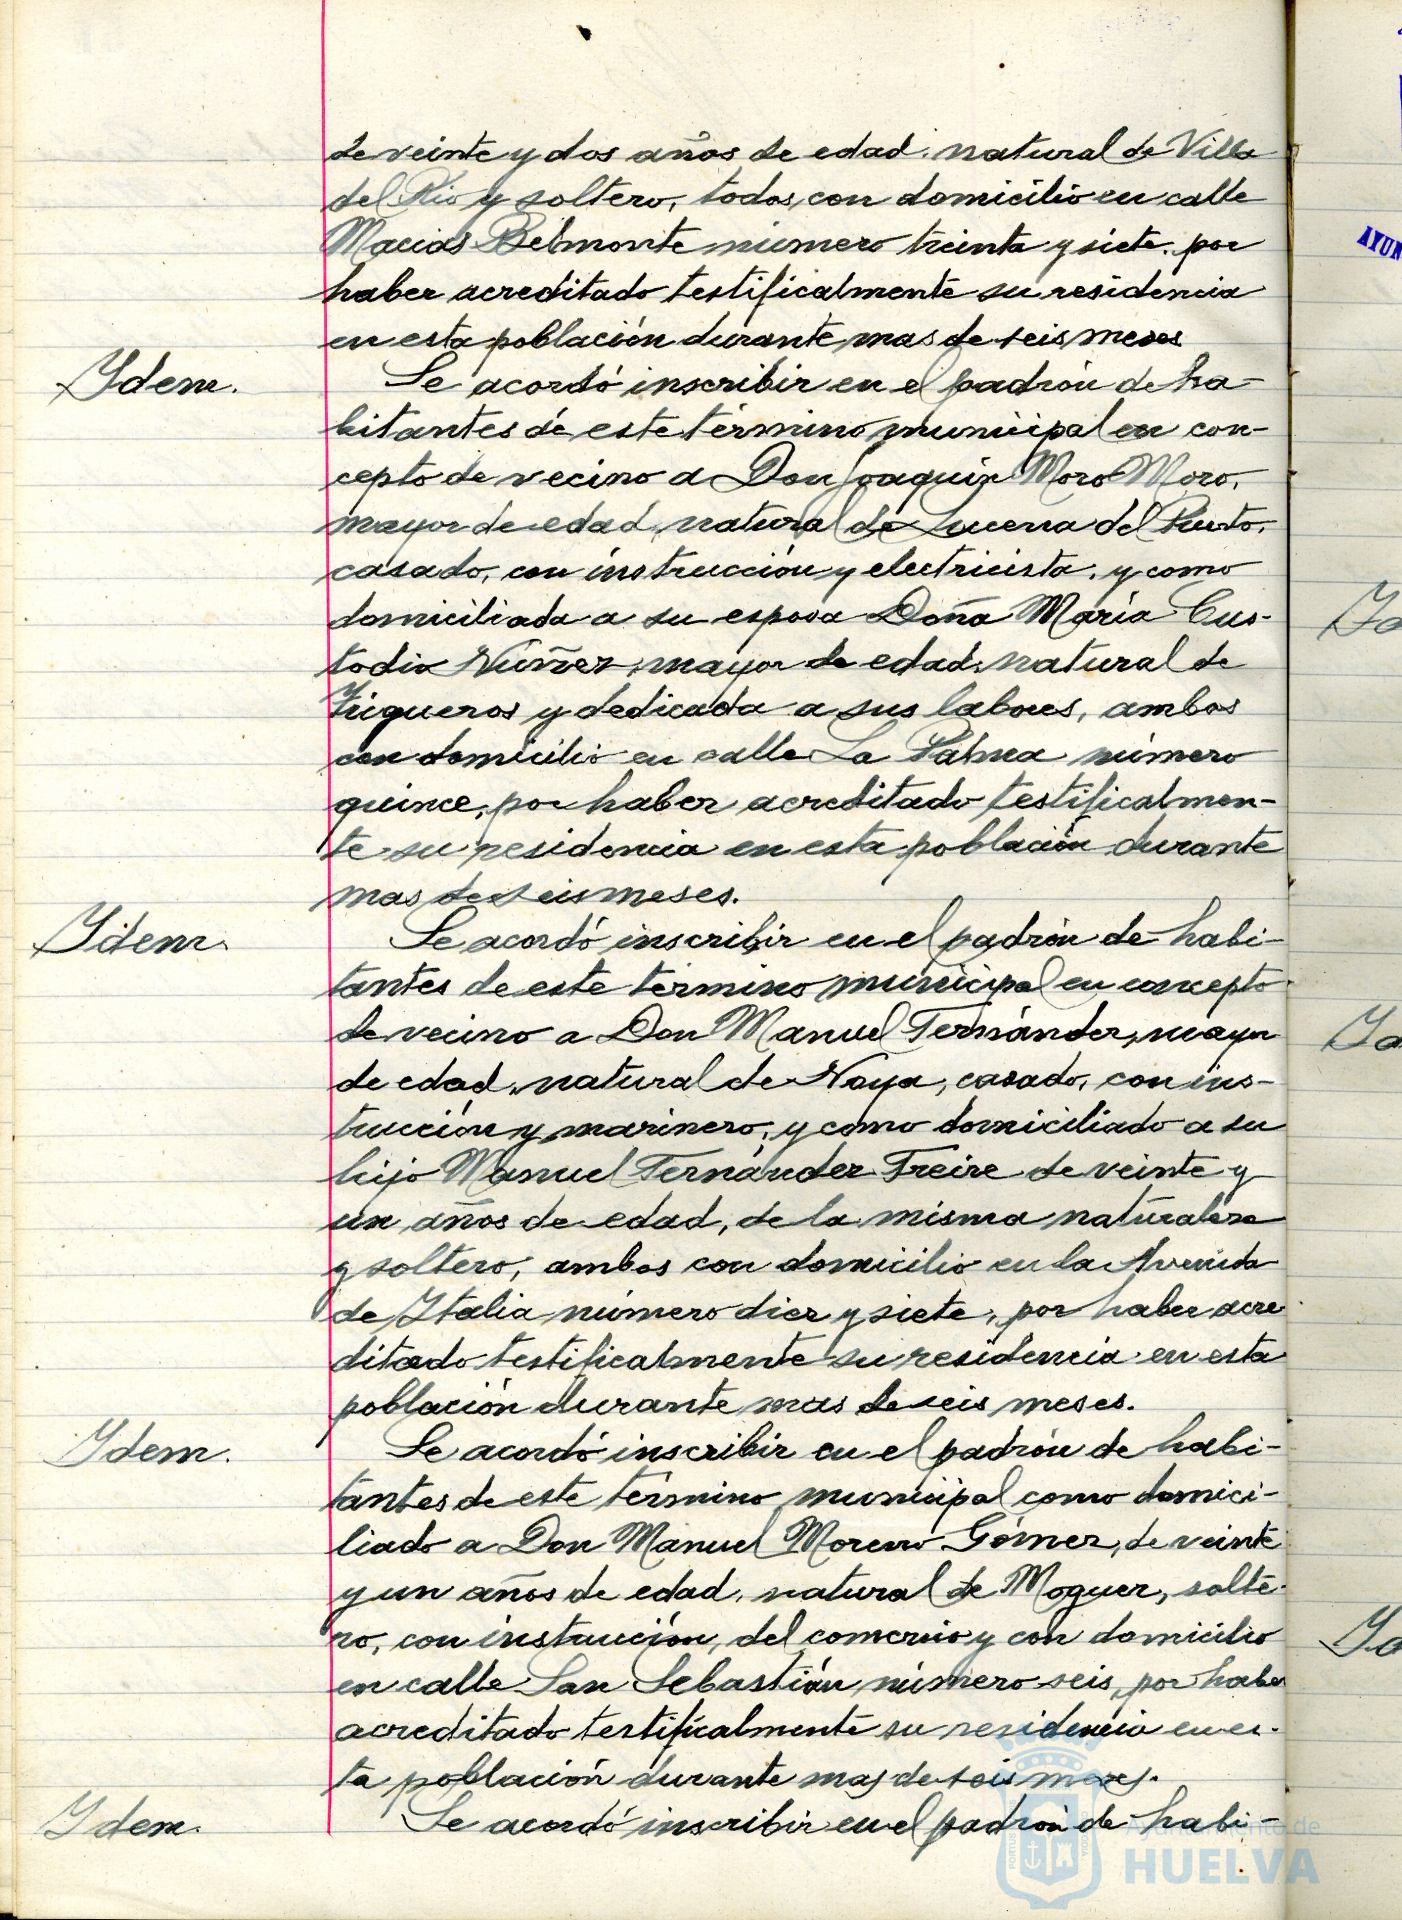 de veinte y dos años de edad, natural de Villa
del Rio y soltero, todos con domicilio en calle
Macias Belmonte número treinta y siete, por
haber acreditado testificalmente su residencia
en esta población durante mas de seis meses
Idem.
Se acordó inscribir en el padrón de ha-
bitantes de este término municipal en con-
cepto de vecino a Don Joaquin Moro Moro,
mayor de edad, natural de Lucena del Puerto,
casado, con instrucción y electricista, y como
domiciliada a su esposa Doña María Cus-
todia Nuñez, mayor de edad, natural de
Trigueros y dedicada a sus labores, ambos
con domicilio en calle La Palma número
quince, por haber acreditado testificalmen-
te su residencia en esta población durante
mas de seis meses.
Idem.
Se acordó inscribir en el padrón de habi-
tantes de este término municipal en concepto
de vecino a Don Manuel Fernández, mayor
de edad, natural de Noya, casado, con ins-
trucción y marinero, y como domiciliado a su
hijo Manuel Fernández Freire de veinte y
un años de edad, de la misma naturaleza
y soltero, ambos con domicilio en la Avenida
de Italia número diez y siete, por haber acre
ditado testificalmente su residencia en esta
población durante mas de seis meses.
Idem.
Se acordó inscribir en el padrón de habi-
tantes de este término municipal como domici-
liado a Don Manuel Moreno Gómez, de veinte
y un años de edad, natural de Moguer, solte-
ro, con instrucción, del comercio y con domicilio
en calle San Sebastián, número seis, por haber
acreditado testificalmente su residencia en es-
ta población durante mas de seis meses.
Idem.
Se acordó inscribir en el padrón de habi-
Ayuntamiento de
HUELVA
AYUN